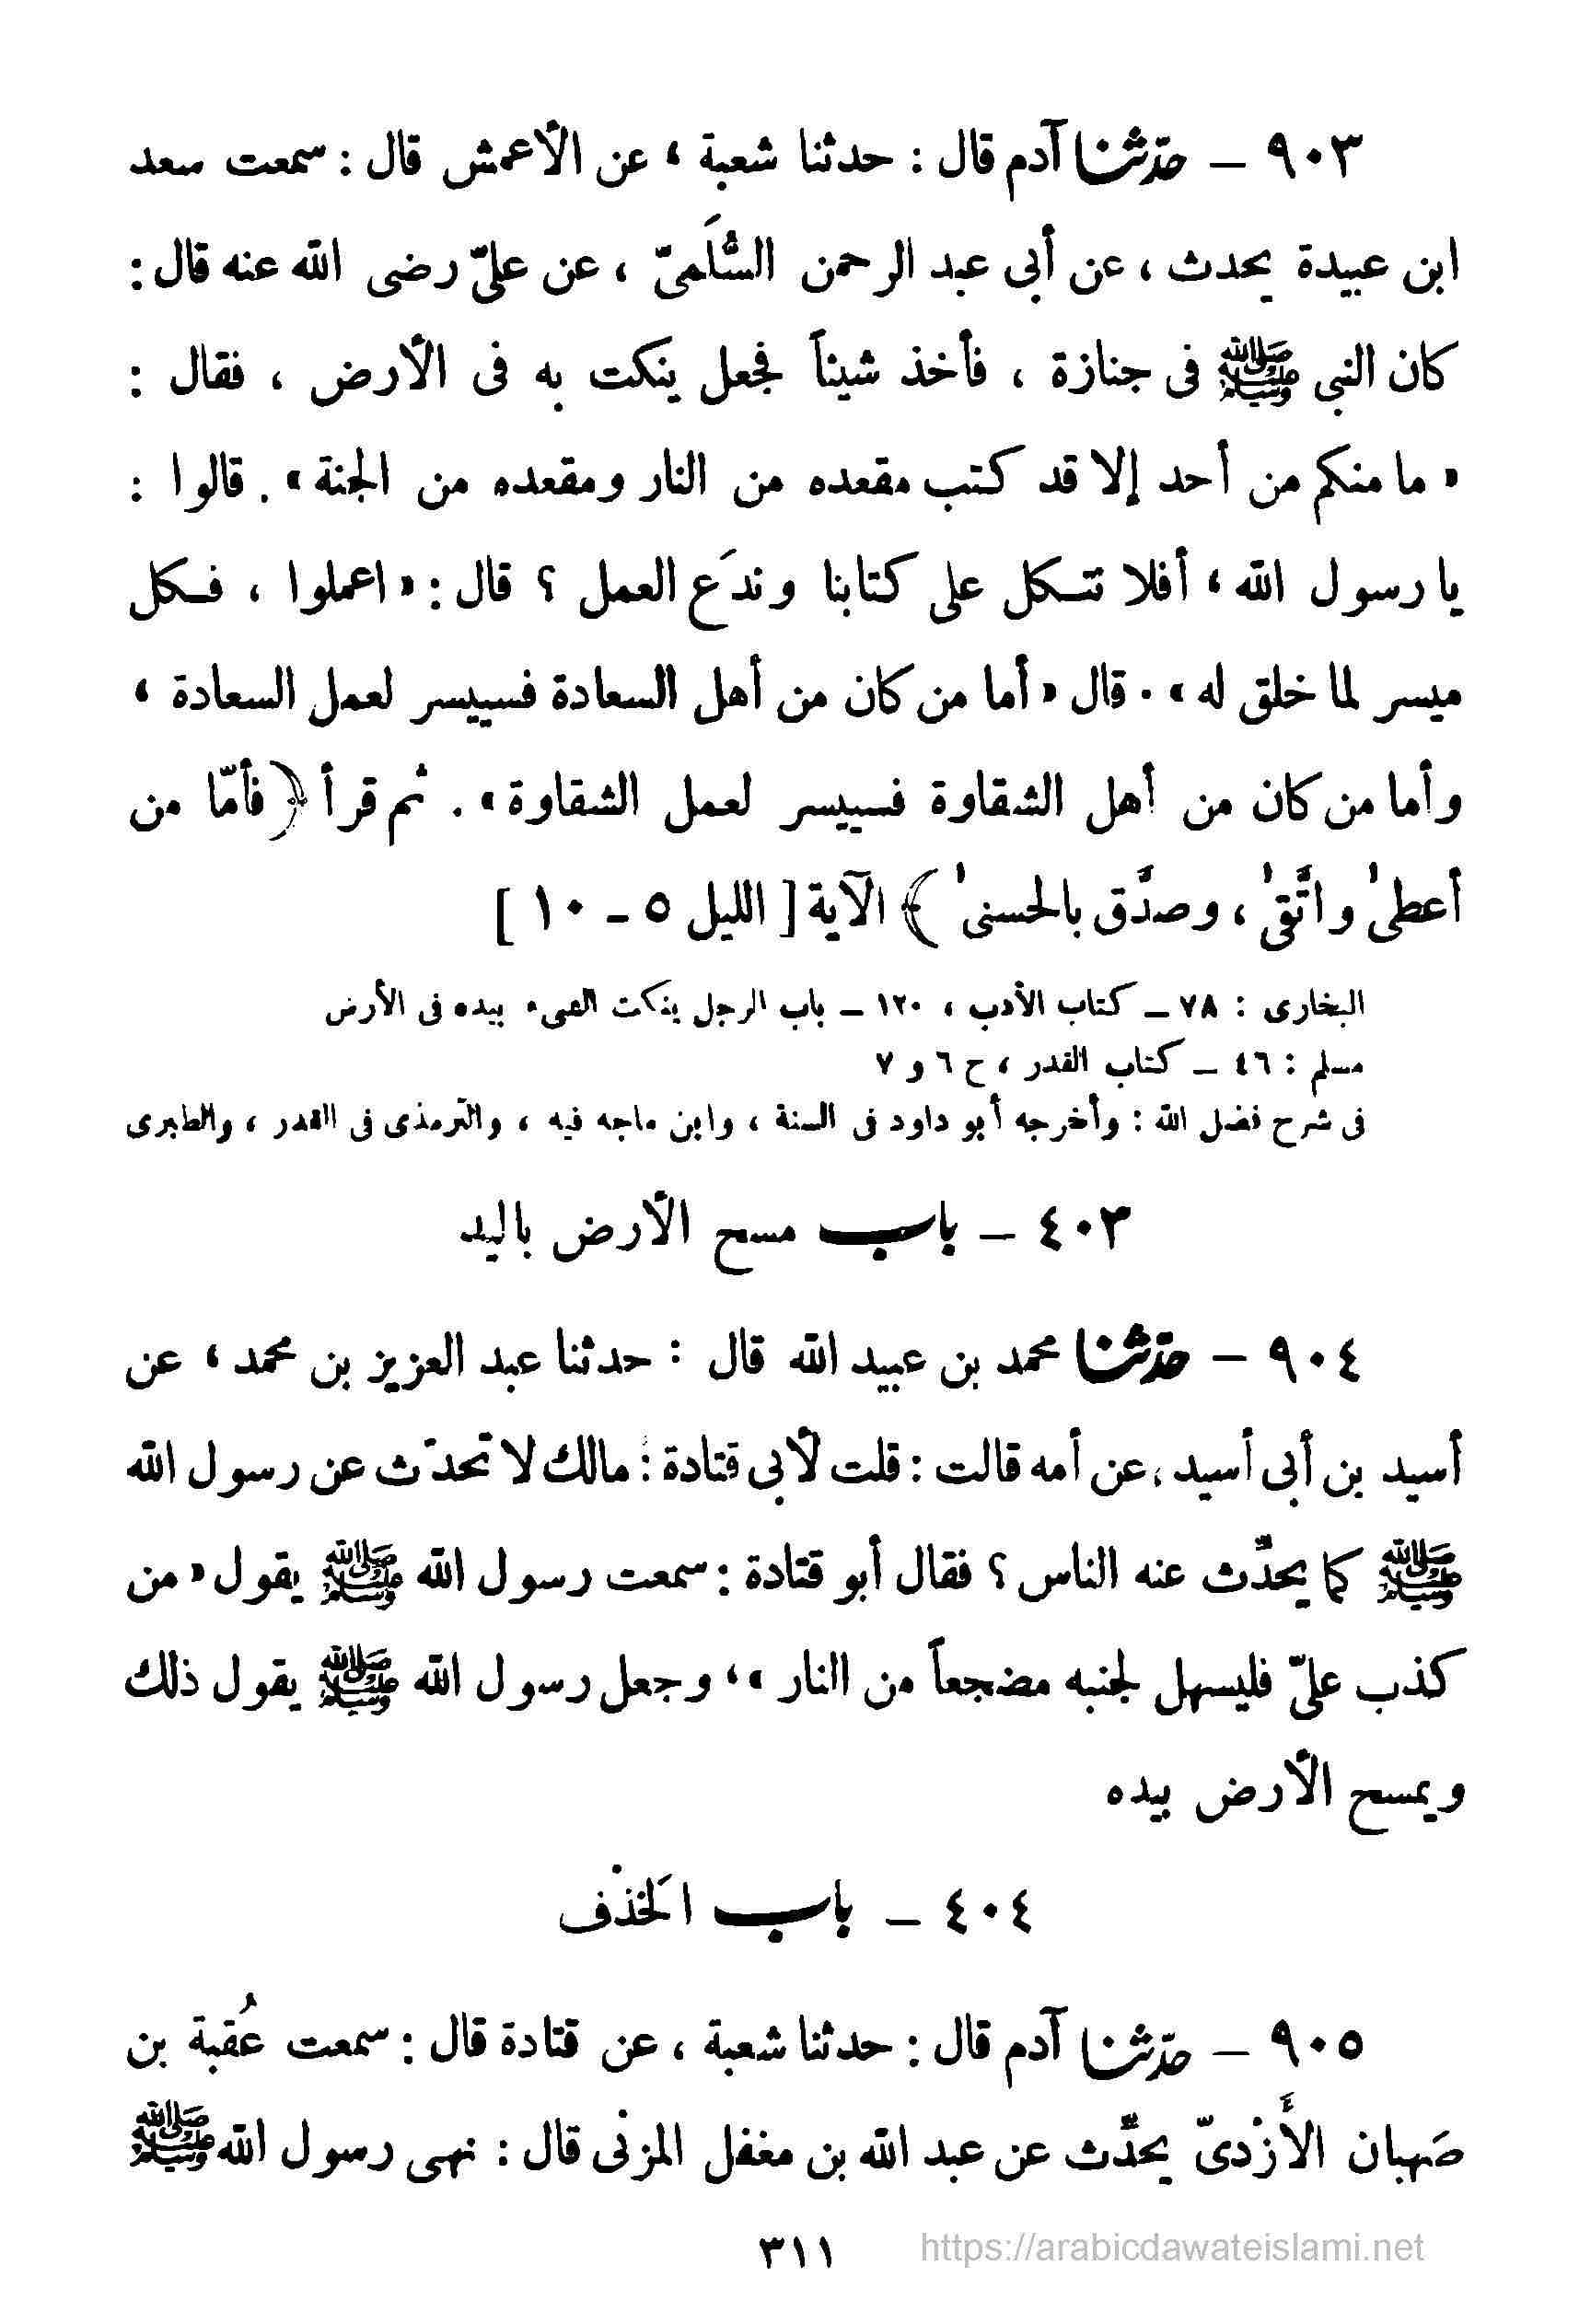 ٩٠٣ – حدّثنا آدم قال : حدثنا شعبة ، عن الأعمش قال : سمعت سعد
ابن عبيدة يحدث ، عن أبى عبد الرحمن السُّلَمىّ ، عن علىّ رضى الله عنه قال :
كان النبى ﷺ فى جنازة ، فأخذ شيئاً فجعل ينكت به فى الأرض ، فقال :
« ما منكم من أحد إلا قد كتب مقعده من النار ومقعده من الجنة » . قالوا :
يا رسول الله ، أفلا نتكل على كتابنا وندَع العمل ؟ قال : « اعملوا ، فكل
ميسر لما خلق له » . قال « أما من كان من أهل السعادة فسييسر لعمل السعادة ،
وأما من كان من أهل الشقاوة فسييسر لعمل الشقاوة » . ثم قرأ ﴿ فأمّا من
أعطىٰ واتَّقىٰ ، وصدَّق بالحسنىٰ ﴾ الآية [ الليل ٥ – ١٠ ]
البخارى : ٧٨ – كتاب الأدب ، ١٢٠ – باب الرجل ينكت الشىء بيده فى الأرض
مسلم : ٤٦ – كتاب القدر ، ح ٦ و ٧
فى شرح فضل الله : وأخرجه أبو داود فى السنة ، وابن ماجه فيه ، والترمذى فى القدر ، والطبرى
٤٠٣ – باب مسح الأرض باليد
٩٠٤ – حدّثنا محمد بن عبيد الله قال : حدثنا عبد العزيز بن محمد ، عن
أسيد بن أبى أسيد ، عن أمه قالت : قلت لأبى قتادة : مالك لا تحدّث عن رسول الله
ﷺ كما يحدِّث عنه الناس ؟ فقال أبو قتادة : سمعت رسول الله ﷺ يقول « من
كذب علىّ فليسهل لجنبه مضجعاً من النار » ، وجعل رسول الله ﷺ يقول ذلك
ويمسح الأرض بيده
٤٠٤ – باب الخَذْف
٩٠٥ – حدّثنا آدم قال : حدثنا شعبة ، عن قتادة قال : سمعت عُقبة بن
صَهبان الأَزْدىّ يحدِّث عن عبد الله بن مغفل المزنى قال : نهى رسول الله ﷺ
٣١١
https://arabicdawateislami.net